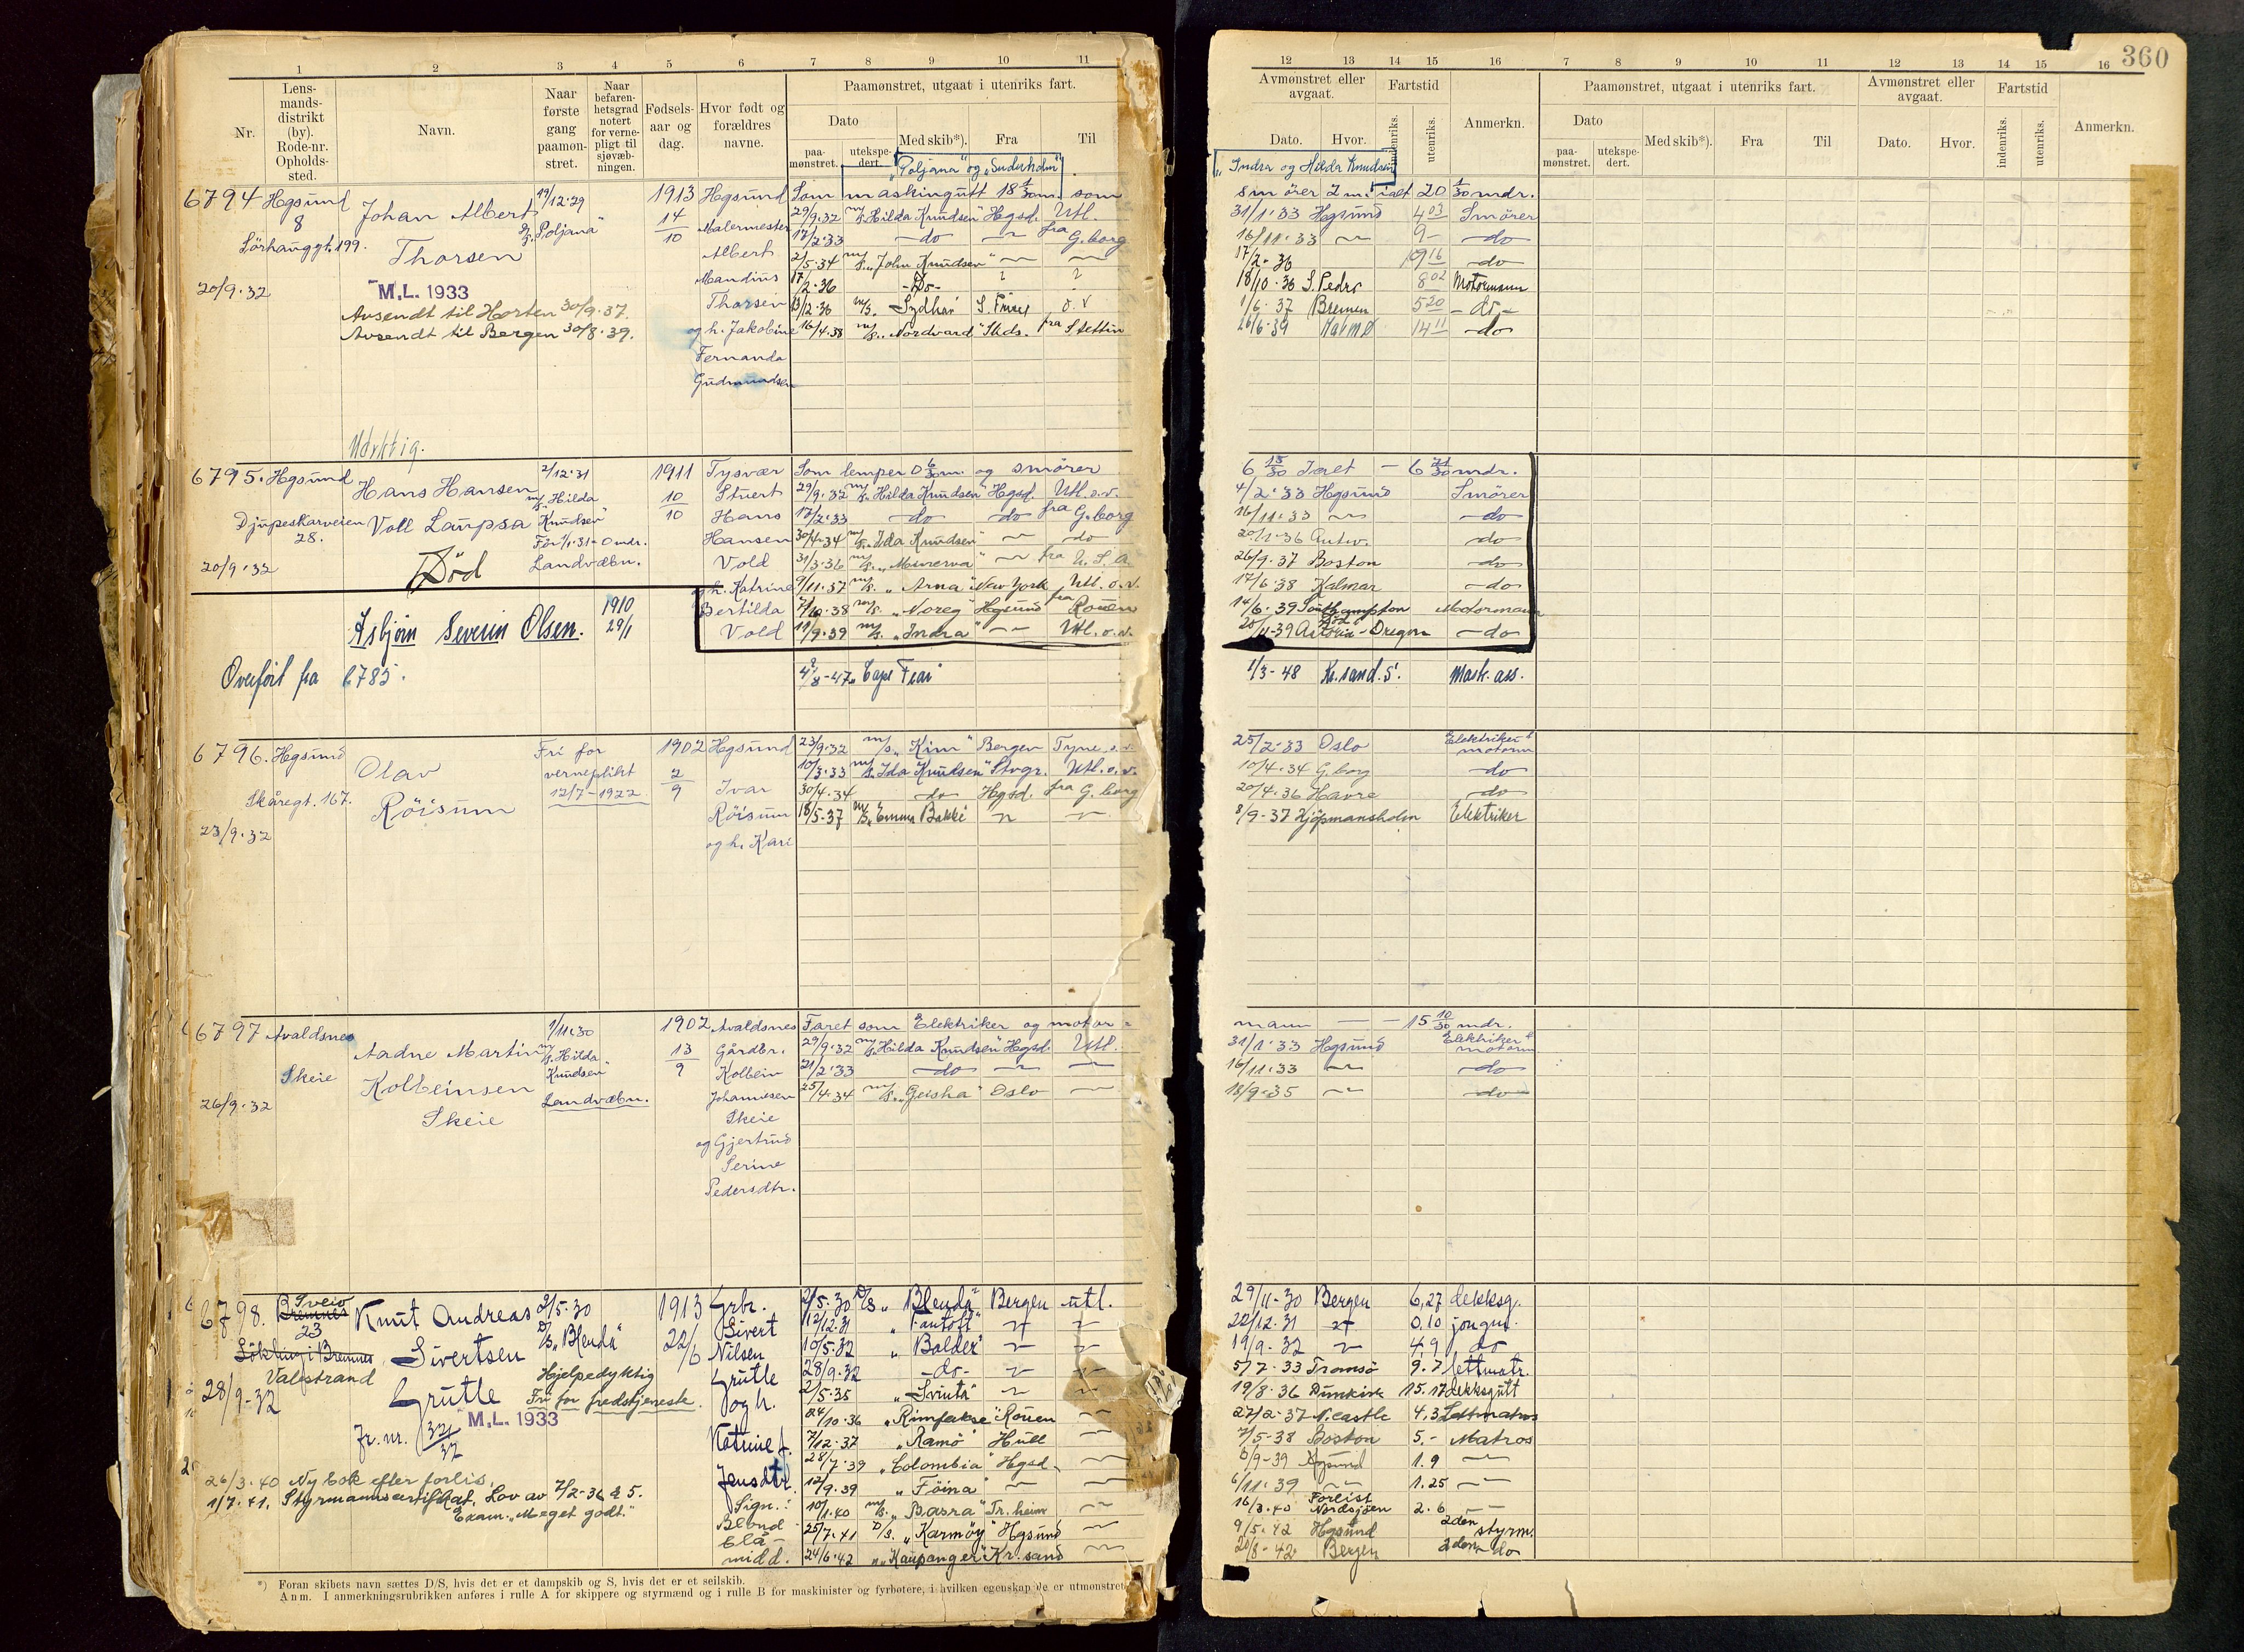 360
1 2 3 4 5 6 7 8 9 10 11
Nr.
Lens-
mands-
distrikt
(by).
Rode-nr.
Opholds-
sted.
Navn.
Naar
første
gang
paamøn-
stret.
Naar
befaren-
hetsgrad
notert
for verne-
pligt til
sjøvæb-
ningen.
Fødsels-
aar og
dag.
Hvor født og
forældres
navne.
Paamønstret, utgaat i utenriks fart.
Dato
paa-
mønstret.
utekspe-
dert.
Med skib*).
Fra
Til
12 13 14 15 16 7 8 9 10 11 12 13 14 15 16
Avmønstret eller
avgaat.
Dato. Hvor.
Fartstid
indenriks.
utenriks.
Anmerkn.
Paamønstret, utgaat i utenriks fart.
Dato
paa-
mønstret.
utekspe-
dert.
Med skib*).
Fra
Til
Avmønstret eller
avgaat.
Dato. Hvor.
Fartstid
indenriks.
utenriks.
Anmerkn.
"Poljana" og "Suderholm"
"Indra og Hilda Knudsen
6794 Hgsund
8
Sörhauggt. 199.
20/9.32
Johan Albert
Thorsen
M.L. 1933
Avsendt til Horten 30/9.37.
Avsendt til Bergen 30/8.39.
19/12.29
"Poljana"
1913
14
10
Hgsund
Malermester
Albert
Mandius
Thorsen
og h. Jakobine
Fernanda
Gudmundsen
Som maskingutt 18 1/30 m. som
smörer 2 m. ialt 20 1/30 mdr.
29/9.32 m/s. "Hilda Knudsen" Hgsd. Utl. 31/1.33 Hgsund 4 03 Smörer
17/2.33 do fra G.borg 16/11.33 9- do
2/5.34 m/s. "John Knudsen" 17/2-36 do
17/2-36 -Do- 18/10.36 S. Pedro 8 02 Motormann
m/s. Sydhav 1/6.37 Bremen 5 20 -do-
16/4.38 m/s. "Nordvard" Skds. fra Stettin 26/6.39 Malmø 14 11 do
6795. Hgsund
Djupeskarveien
28.
20/9.32
Hans Hansen
Voll Laupsa
Död
2/12.31
m/s. "Hilda
Knudsen"
För 1/1.31 - 0 mdr.
Landvæbn.
1911
10
10
Tysvær
Stuert
Hans
Hansen
Vold
og h. Katrine
Bertilda
Vold
Som lemper 0 6/30 m. og smörer
6 15/30 Ialt - 6 21/30 mdr.
29/9.32 m/s. "Hilda Knudsen" Hgsd. Utl. o.v. 4/2.33 Hgsund Smörer
17/2.33 do do fra G.borg 16/11.33 do
30/4.34 m/s. "Ida Knudsen" do 20/1.36 Antw. do
31/3.36 m/s. "Minerva" fra U.S.A. 26/9.37 Boston do
9/11.37 m/s. "Arna" New York Utl. o.v. 17/6.38 Kalmar do
7/10.38 m/s. "Noreg" Hgsund fra Rouen 14/6.39 Southampton Motormann
11/9.39 m/s. "Indra" Utl. o.v. 20/11-39 Död Astoria - Oregon do
Asbjörn Severin Olsen. 1910
29/1
Overfört fra 6785.
4/8-47 "Cape Fear" 1/3-48 Kr.sand.S. Mask. ass.
6796. Hgsund
Skåregt. 167.
23/9.32
Olav
Röisum
Fri for
verneplikt
12/7-1922
1902
2
9
Hgsund
Ivar
Röisum
og h. Kari
23/9.32 m/s. "Kim" Bergen Tyne o.v. 25/2.33 Oslo Elektriker &
motorm
10/3.33 m/s. "Ida Knudsen" Stvgr. Utl. o.v. 10/4.34 G.borg do
30/4.34 do Hgsd. fra G.borg 20/4.36 Havre do
15/5-37 m/s. "Emma Bakke" 8/9-37 Kjöpmansholm Elektriker
6797 Avaldsnes
Skeie
26/9.32
Aadne Martin
Kolbeinsen
Skeie
1/11.30
m/s. "Hilda
Knudsen"
Landvæbn.
1902
13
9
Avaldsnes
Gårdbr.
Kolbein
Johannesen
Skeie
og Gjertrud
Serine
Pedersdtr.
Faret som Elektriker og motor-
mann - - 15 10/30 mdr.
29/9.32 m/s. "Hilda Knudsen" Hgsd. Utl. 31/1.33 Hgsund Elektriker &
motorm
21/2.33 do 16/11.33 do
25/4.34 m/s. "Geisha" Oslo 18/9-35 do
6798. Sveio
Bremnes
23
i Bremnes
Valestrand
28/9-32
Knut Andreas
Sivertsen
Grutle
M.L. 1933
Jr. nr. 321
37
2/5-30
D/S. "Blenda"
Hjelpedyktig
Fri for fredstjeneste.
26/3.40 Ny bok efter forlis.
1/7.41. Styrmannscertifikat. Lov av 7/2-36 § 5.
Exam. "Meget godt."
1913
22/6
Grbr.
Sivert
Nilsen
Grutle
og h.
Katrine J.
Jensdtr.
Sign.:
Blond
blå
midd.
2/5.30 D/S. "Blenda" Bergen utl. 29/11-30 Bergen 6,27 dekksg.
12/12.31 "Fantoft" 22/12.31 0.10 jongm.
10/5-32 "Balder" 19/9-32 4,9 do
28/9.32 -do- 5/7-33 Tromsö 9.7 lettmatr.
2/5-35 19/8.36 Dunkirk 15.17 dekksgutt
24/10.36 "Rimfakse" Rouen 27/2-37 N.castle 4,3 Lettmatros
7/12-37 "Ramö" Hull 7/5-38 Boston 5.- Matros
28/7.39 "Colombia" Hgsd. Hgsund 1.9
12/9.39 "Föina" 6/11.39 1.25
10/1.40 m/s. "Basra" Tr.heim 16/3.40 Forlist
Nordsjöen 2.6
25/7.41 D/S. "Karmöy" Hgsund 9/5-42 Hgsund 2den styrm.
24/6.42 "Kaupanger" Kr.sand 20/8-42 Bergen 2den do
*) Foran skibets navn sættes D/S, hvis det er et dampskib og S, hvis det er et seilskib.
Anm. I anmerkningsrubrikken anføres i rulle A for skippere og styrmænd og i rulle B for maskinister og fyrbøtere, i hvilken egenskap de er utmønstret